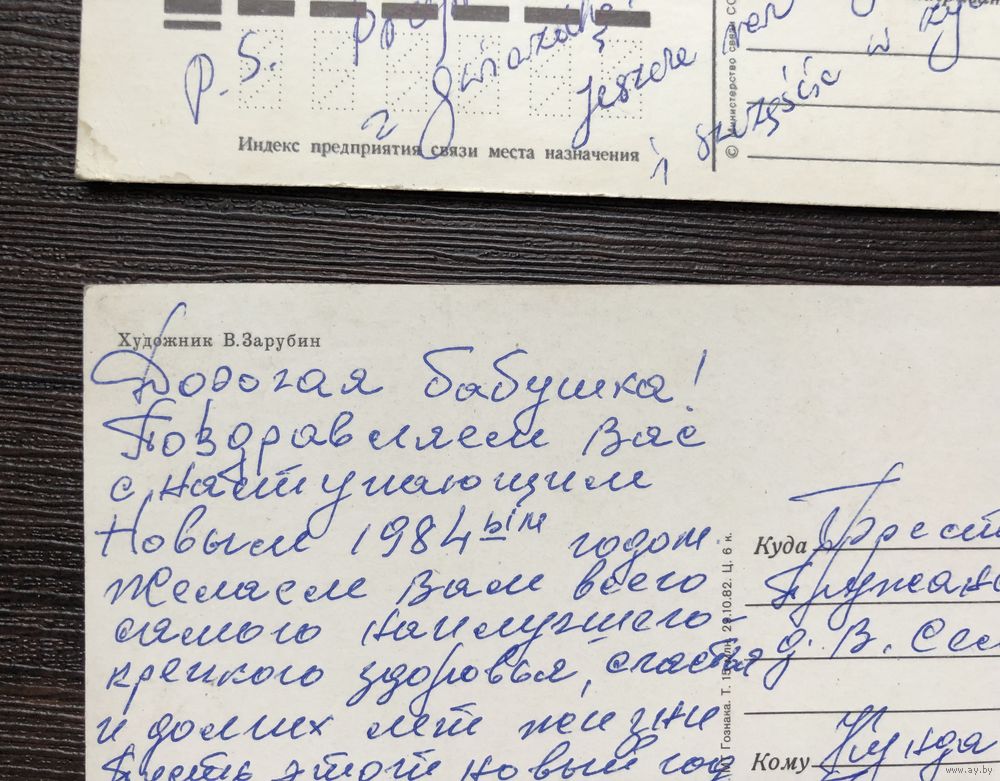 P.S.
jeszcze
z gwiazdką
i szczęścia w
Индекс предприятия связи места назначения
© Министерство связи СС
Художник В.Зарубин
Дорогая бабушка!
Поздравляем Вас
с наступающим
Новым 1984ым годом
Желаем Вам всего
самого наилучшего –
крепкого здоровья, счастья
и долгих лет жизни
Пусть этот новый год
29.10.82. Ц. 6 к.
Гознака. Т. 15
Куда Брест
Пружан
д. В. Сел
Кому
www.ay.by